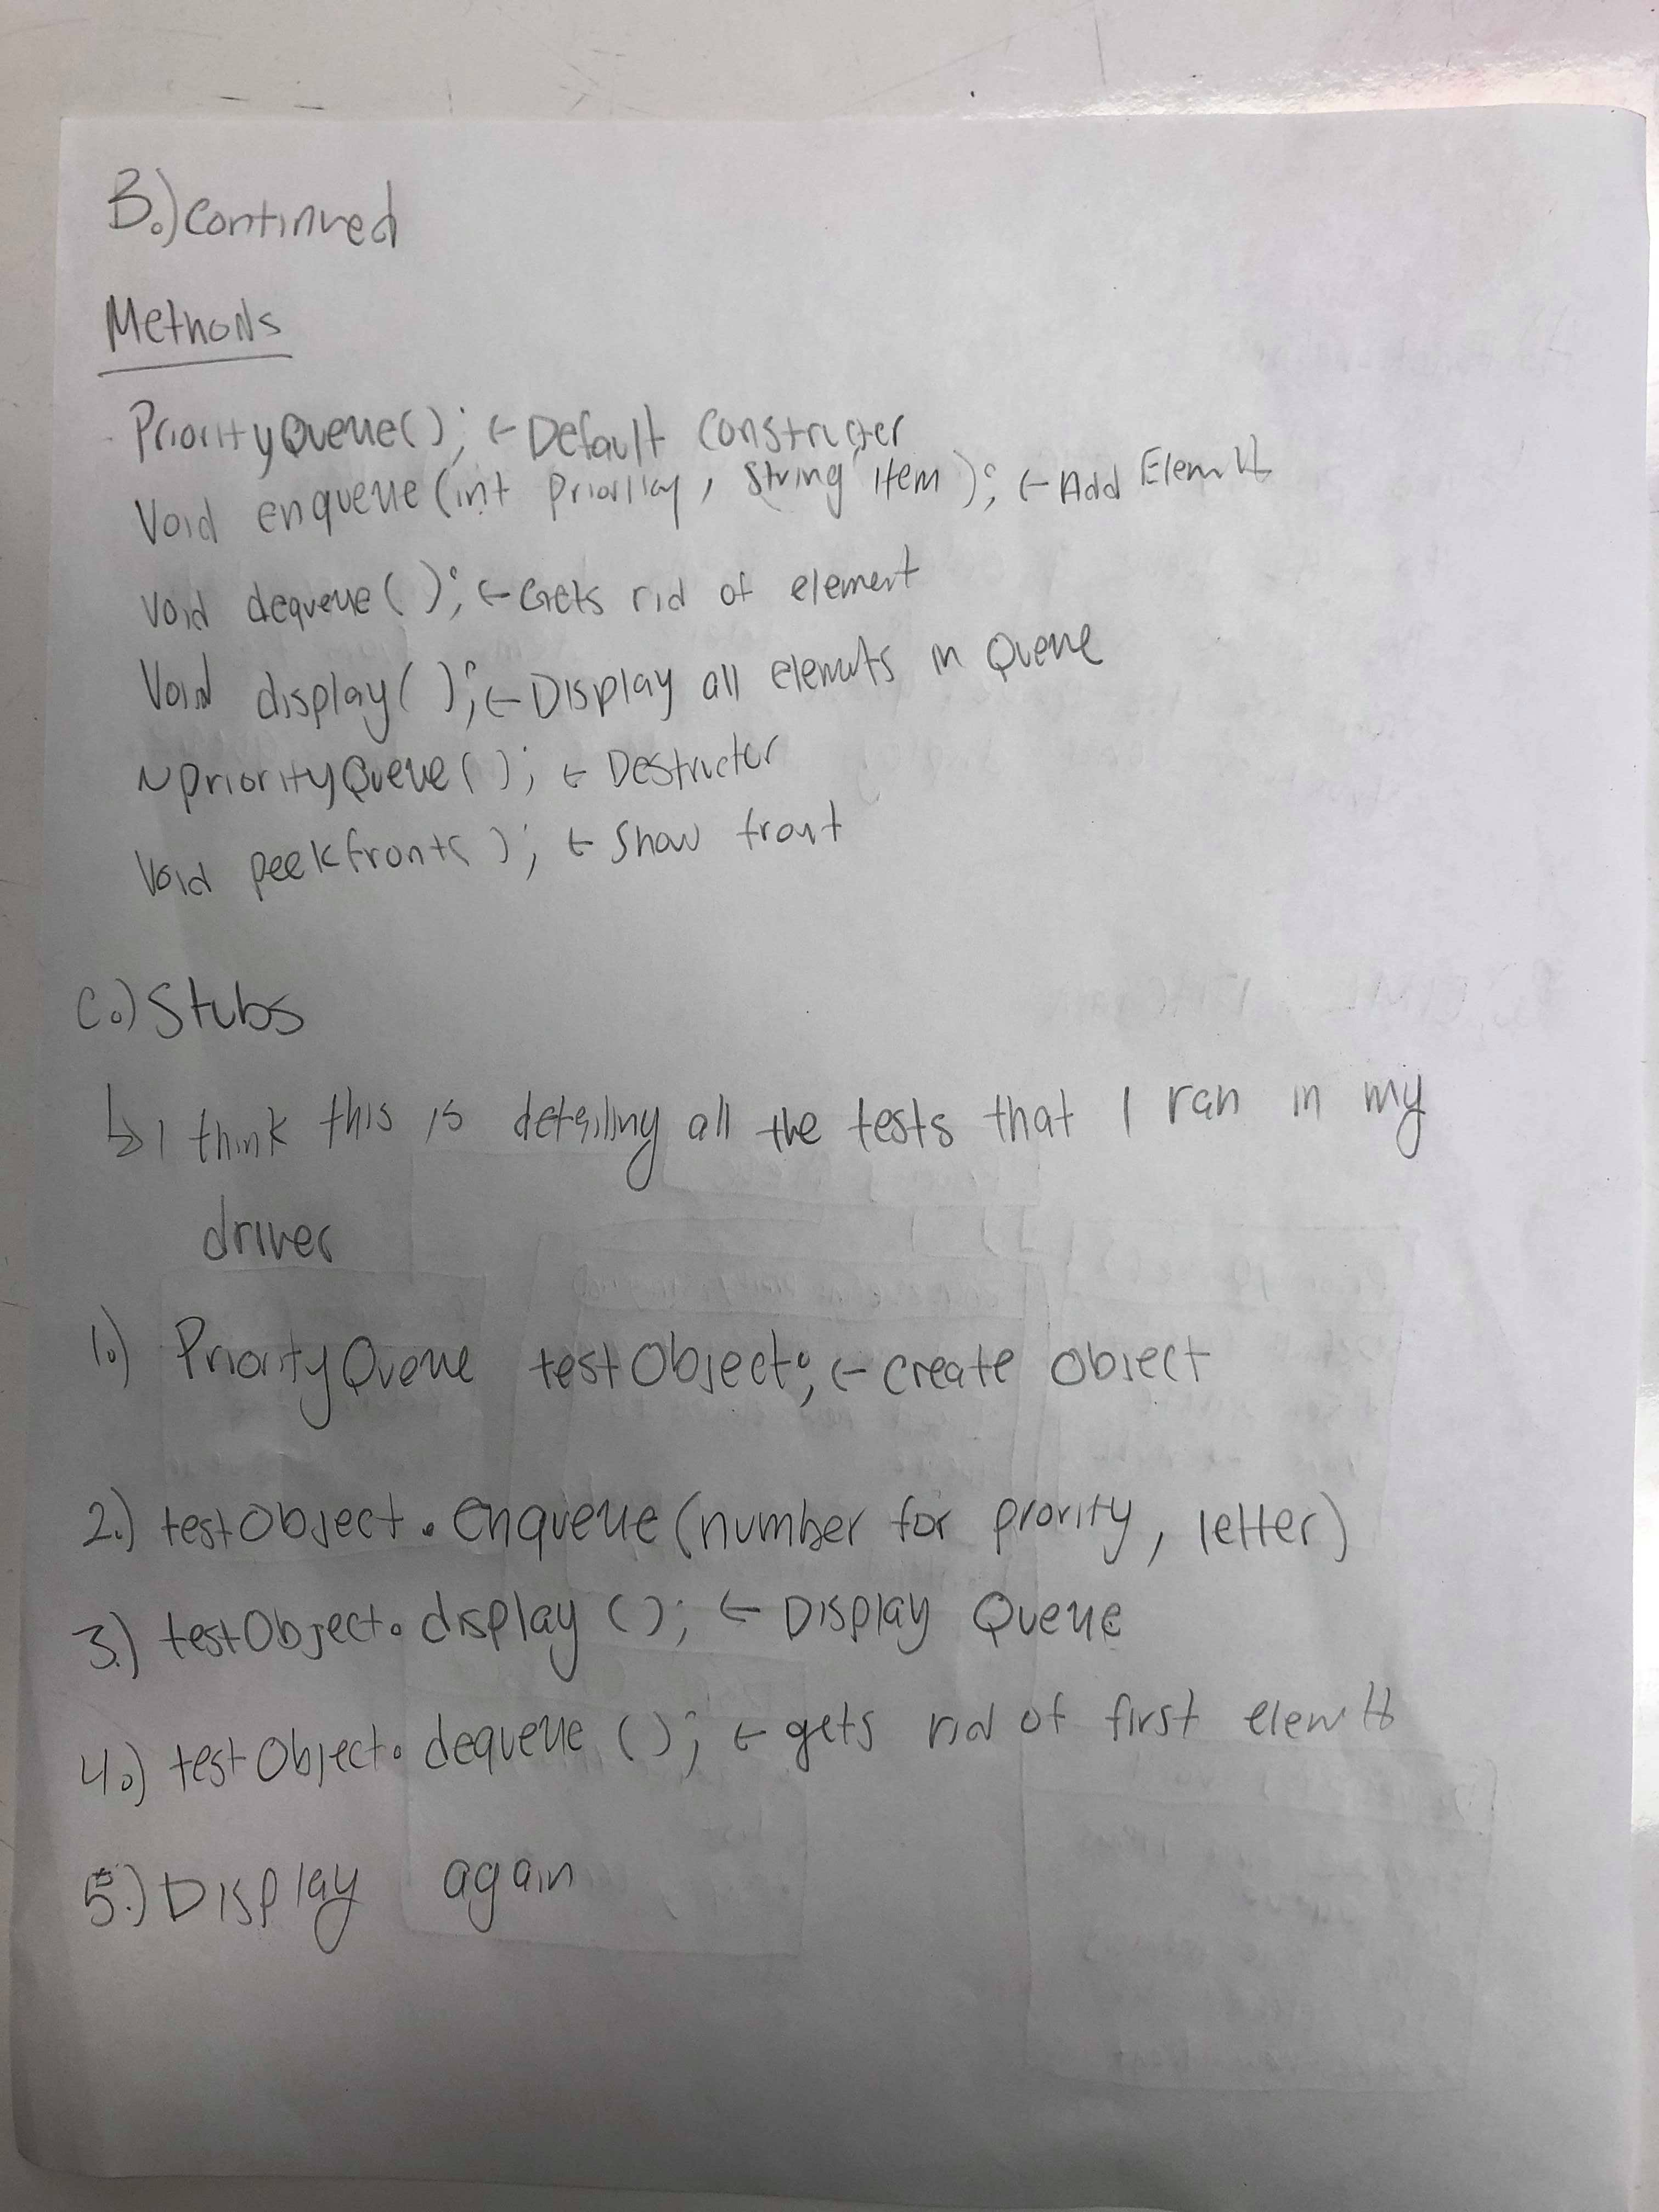 B.) Continued
Methods
PriorityQueue(); ← Default Constructer
Void enqueue(int Priority, String item); ← Add Element
Void dequeue(); ← Gets rid of element
Void display(); ← Display all elements in Queue
~PriorityQueue(); ← Destructer
Void peekfront(); ← Show front
C.) Stubs
↳ I think this is detailing all the tests that I ran in my
driver
1.) PriorityQueue testObject; ← Create Object
2.) testObject.enqueue(number for prority, letter)
3.) testObject.display(); ← Display Queue
4.) testObject.dequeue(); ← gets rid of first element
5.) Display again